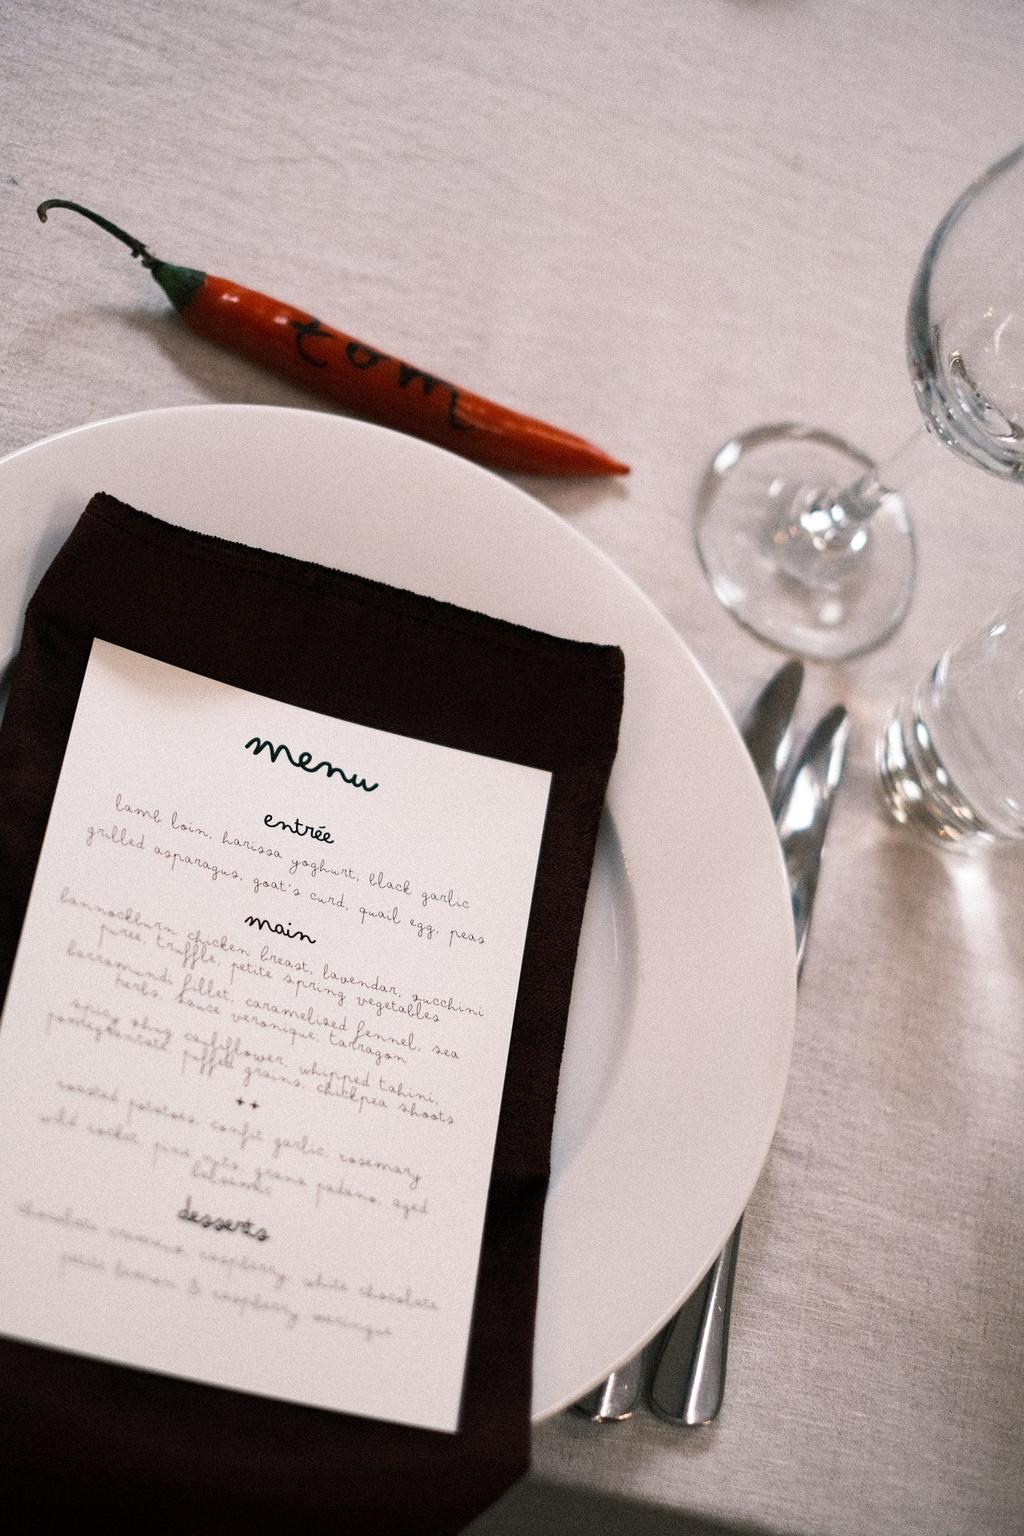 tom
menu
entrée
lamb loin, harissa yoghurt, black garlic
grilled asparagus, goat's curd, quail egg, peas
main
bannockburn chicken breast, lavendar, zucchini
puree, truffle, petite spring vegetables
barramundi fillet, caramelised fennel, sea
herbs, sauce veronique, tarragon
spicy zhug cauliflower, whipped tahini,
pomegranate, puffed grains, chickpea shoots
++
roasted potatoes, confit garlic, rosemary
wild rocket, pine nuts, grana padano, aged
balsamic
desserts
chocolate raspberry white chocolate
petit lemon & raspberry meringue